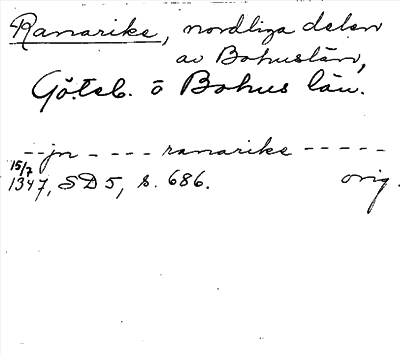 Ranarike, nordliga delen
av Bohuslän,
Göteb. o Bohus län.
--jn ---- ranarike -----
15/7
1347, SD 5, s. 686. orig.